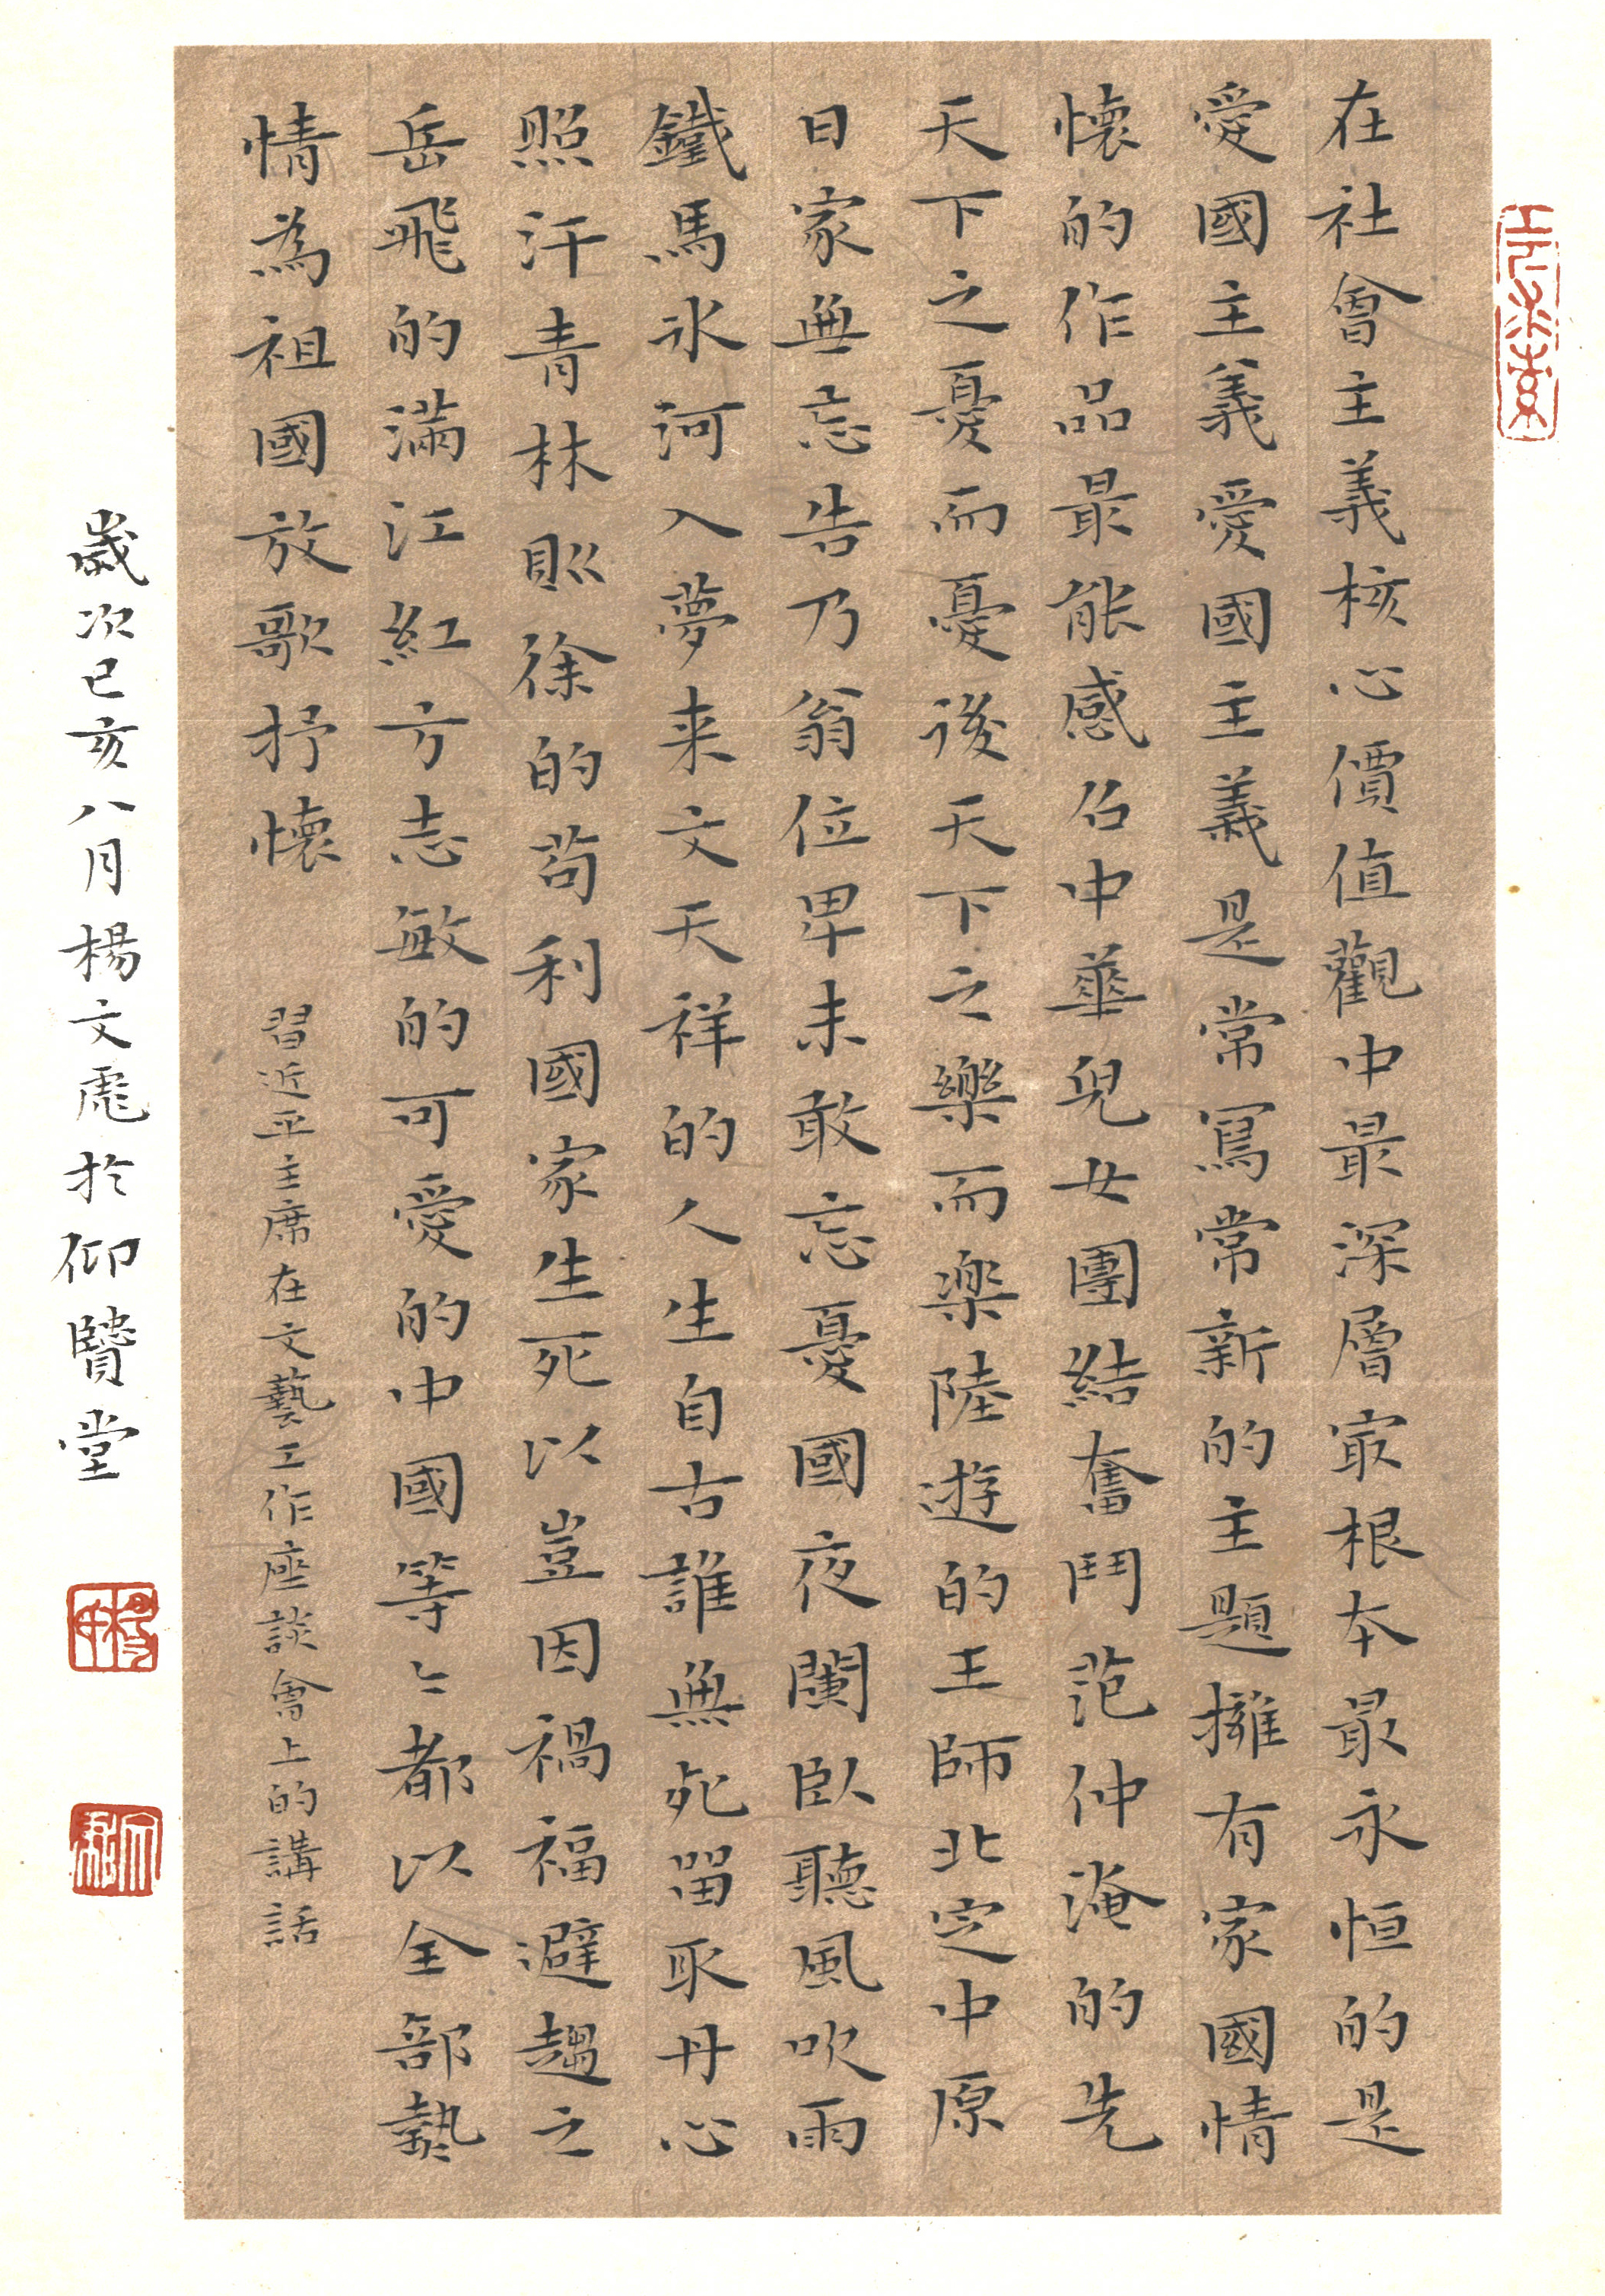 在社會主義核心價值觀中最深層㝡根本最永恒的是
愛國主義愛國主義是常寫常新的主題擁有家國情
懷的作品最能感召中華兒女團結奮鬥范仲淹的先
天下之憂而憂後天下之樂而樂陸遊的王師北定中原
日家無忘告乃翁位卑未敢忘憂國夜闌臥聽風吹雨
鐵馬冰河入夢来文天祥的人生自古誰無死留取丹心
照汗青林則徐的苟利國家生死以豈因禍福避趨之
岳飛的滿江紅方志敏的可愛的中國等々都以全部熱
情為祖國放歌抒懷
習近平主席在文藝工作座談會上的講話
歲次己亥八月楊文彪於仰賢堂